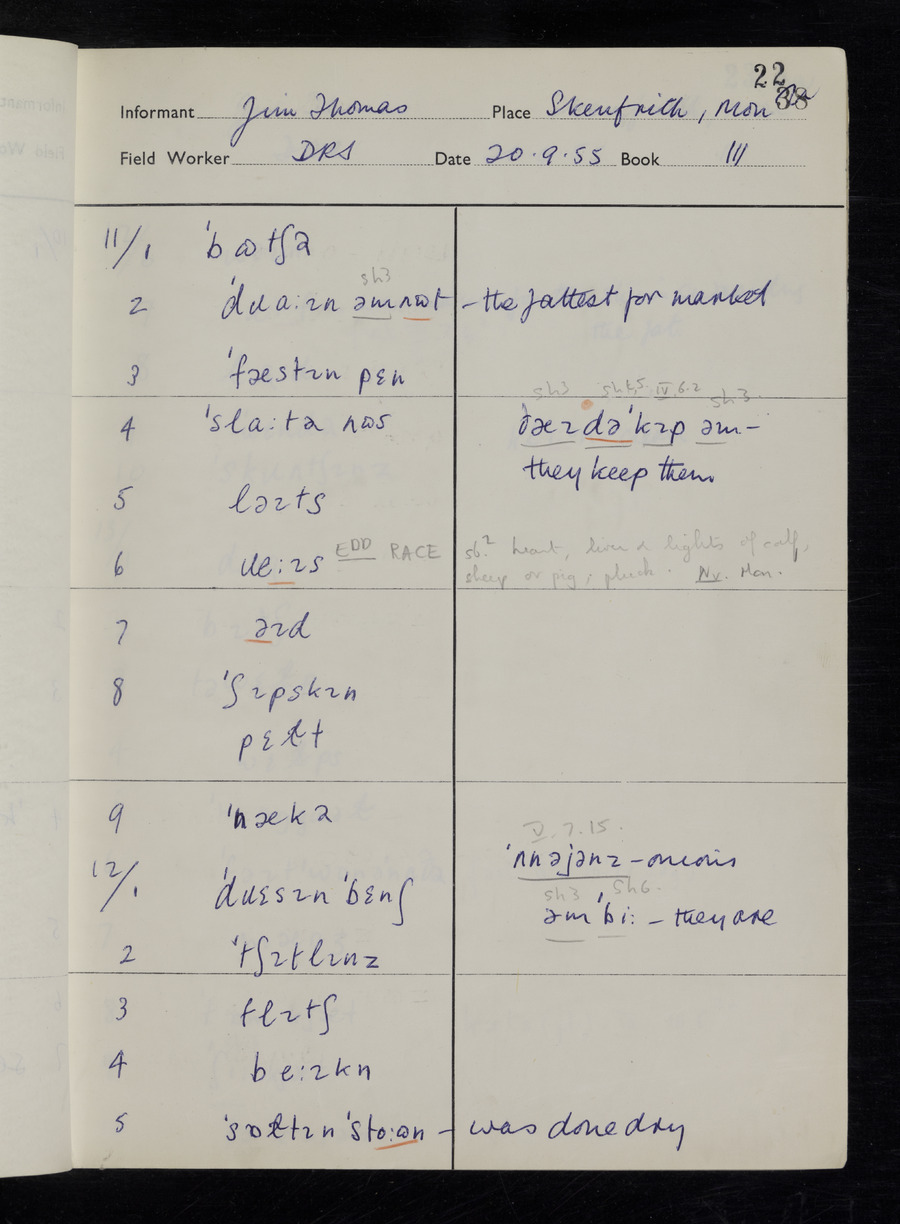 22
38
Informant Jim Thomas Place Skenfrith, Mon
Field Worker DRS Date 20.9.55 Book III
11/1 ˈbʊtʃə
sh3
2 ˈdɹaːɪn əm ɹʊt – the fattest for market
3 ˈfæstɪn pɛn
sh3 sh4,5 IV.6.2 sh3
4 ˈslaːtə ɹʊs ðæɪ də ˈkɪp əm –
they keep them
5 ləɪts
EDD RACE sb.² heart, liver & lights of calf,
6 ɹeːɪs sheep or pig; pluck. Nv. Mon.
7 əɪd
8 ˈʃɪpskɪn
pɛɫt
9 ˈnækə
V.7.15.
ˈʌnəjənz – onions
12/1 ˈdɹɛsɪn ˈbɛnʃ
sh3 sh6.
əm ˈbiː – they are
2 ˈtʃɪtlɪnz
3 flɪtʃ
4 beːɪkn
5 ˈsɒɫtɪn ˈstoːʊn – was done dry